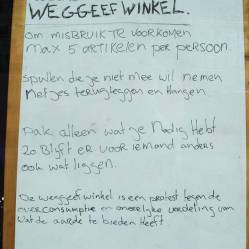 WEGGEEF WINKEL.
OM MISBRUIK TE VOORKOMEN
MAX 5 ARTIKELEN PER PERSOON.
Spullen die je niet mee wil nemen
netjes terugleggen en hangen
Pak alleen wat je nodig hebt
zo blijft er voor iemand anders
ook wat liggen.
De weggeefwinkel is een protest tegen de
overconsumptie en oneerlijke verdeling van
wat de aarde te bieden heeft